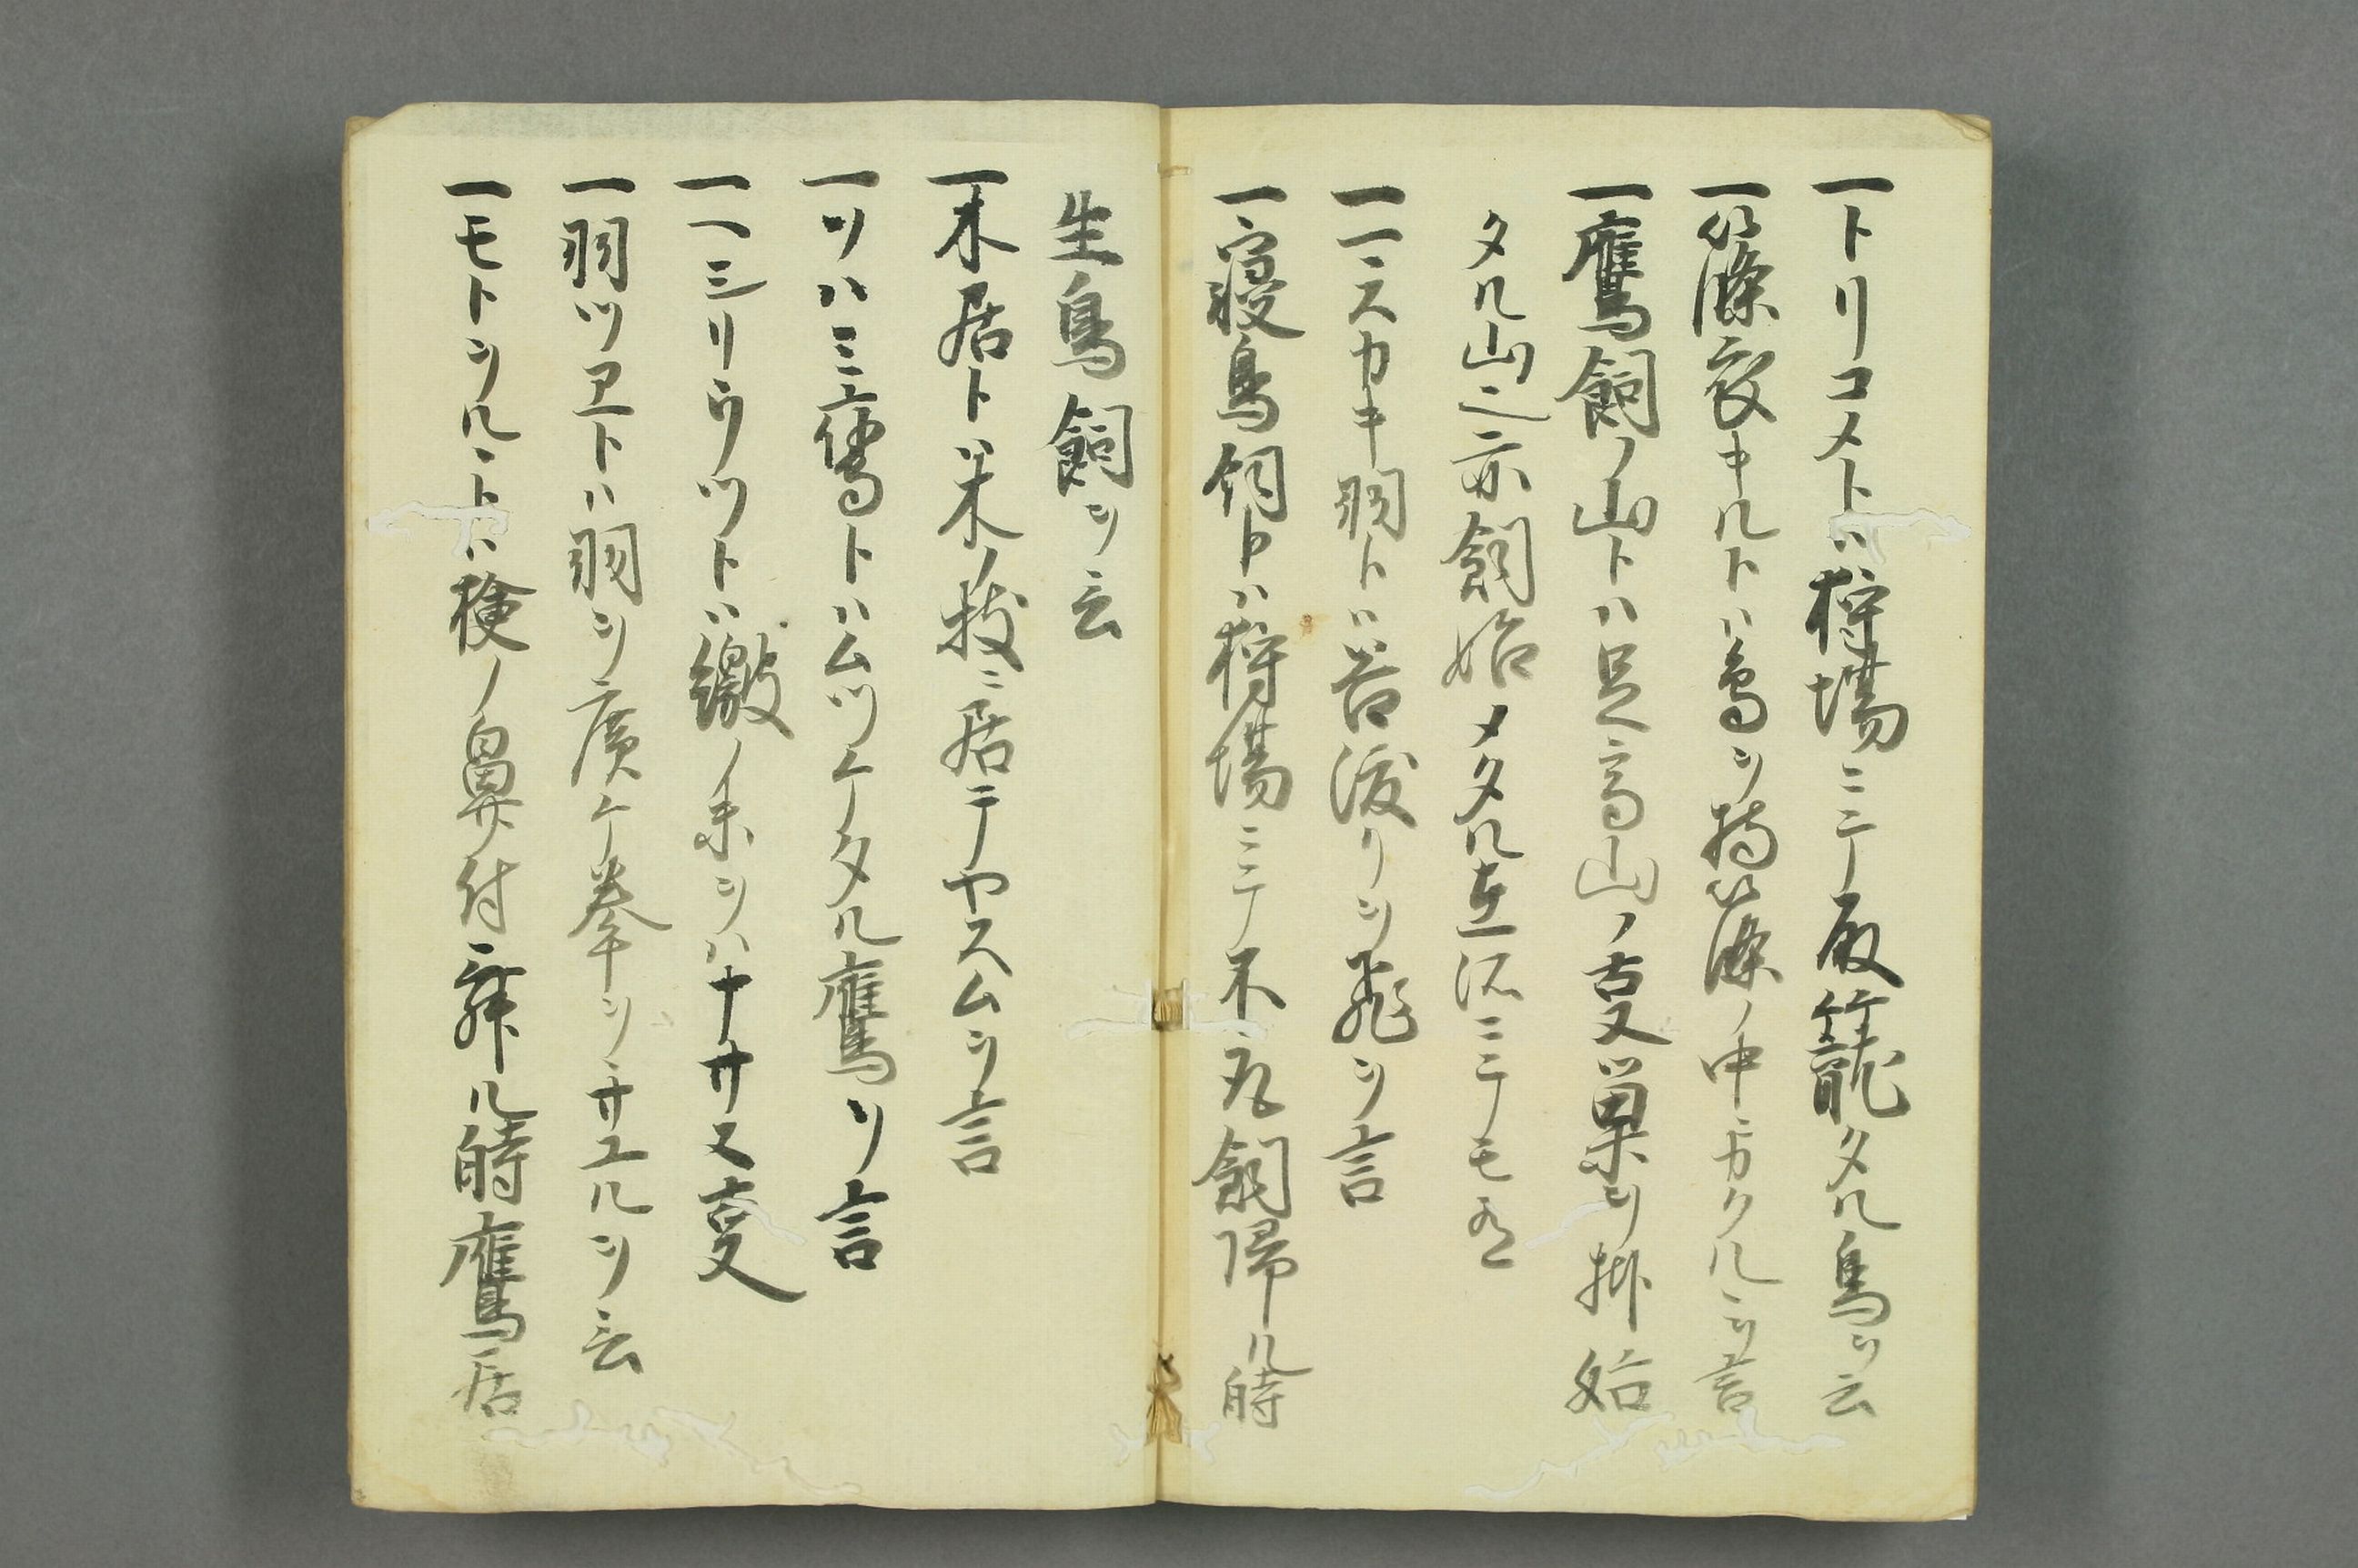 一トリコメトハ狩場ニテ取籠タル鳥ヲ云
一篠衣キルトハ鳥ヲ持篠ノ中ニカクルヽヲ言
一鷹飼ノ山トハ足高山ノ事巣ヲ掛始
タル山之亦飼始メタル在所ニテモ有
一一スカキ羽トハ谷渡リヲ飛ヲ言
一寝鳥飼トハ狩場ニテ不取飼帰ル時
生鳥飼ヲ云
一木居トハ木ノ枝ニ居テヤスムヲ言
一ツハミ立トハムツケタル鷹ヲ言
一ヘシリウツトハ繳ノ糸ヲハナササヌ事
一羽ツヱトハ羽ヲ廣ケ拳ヲサユルヲ云
一モトツルヽトハ犬ノ鼻付辞ル時鷹居